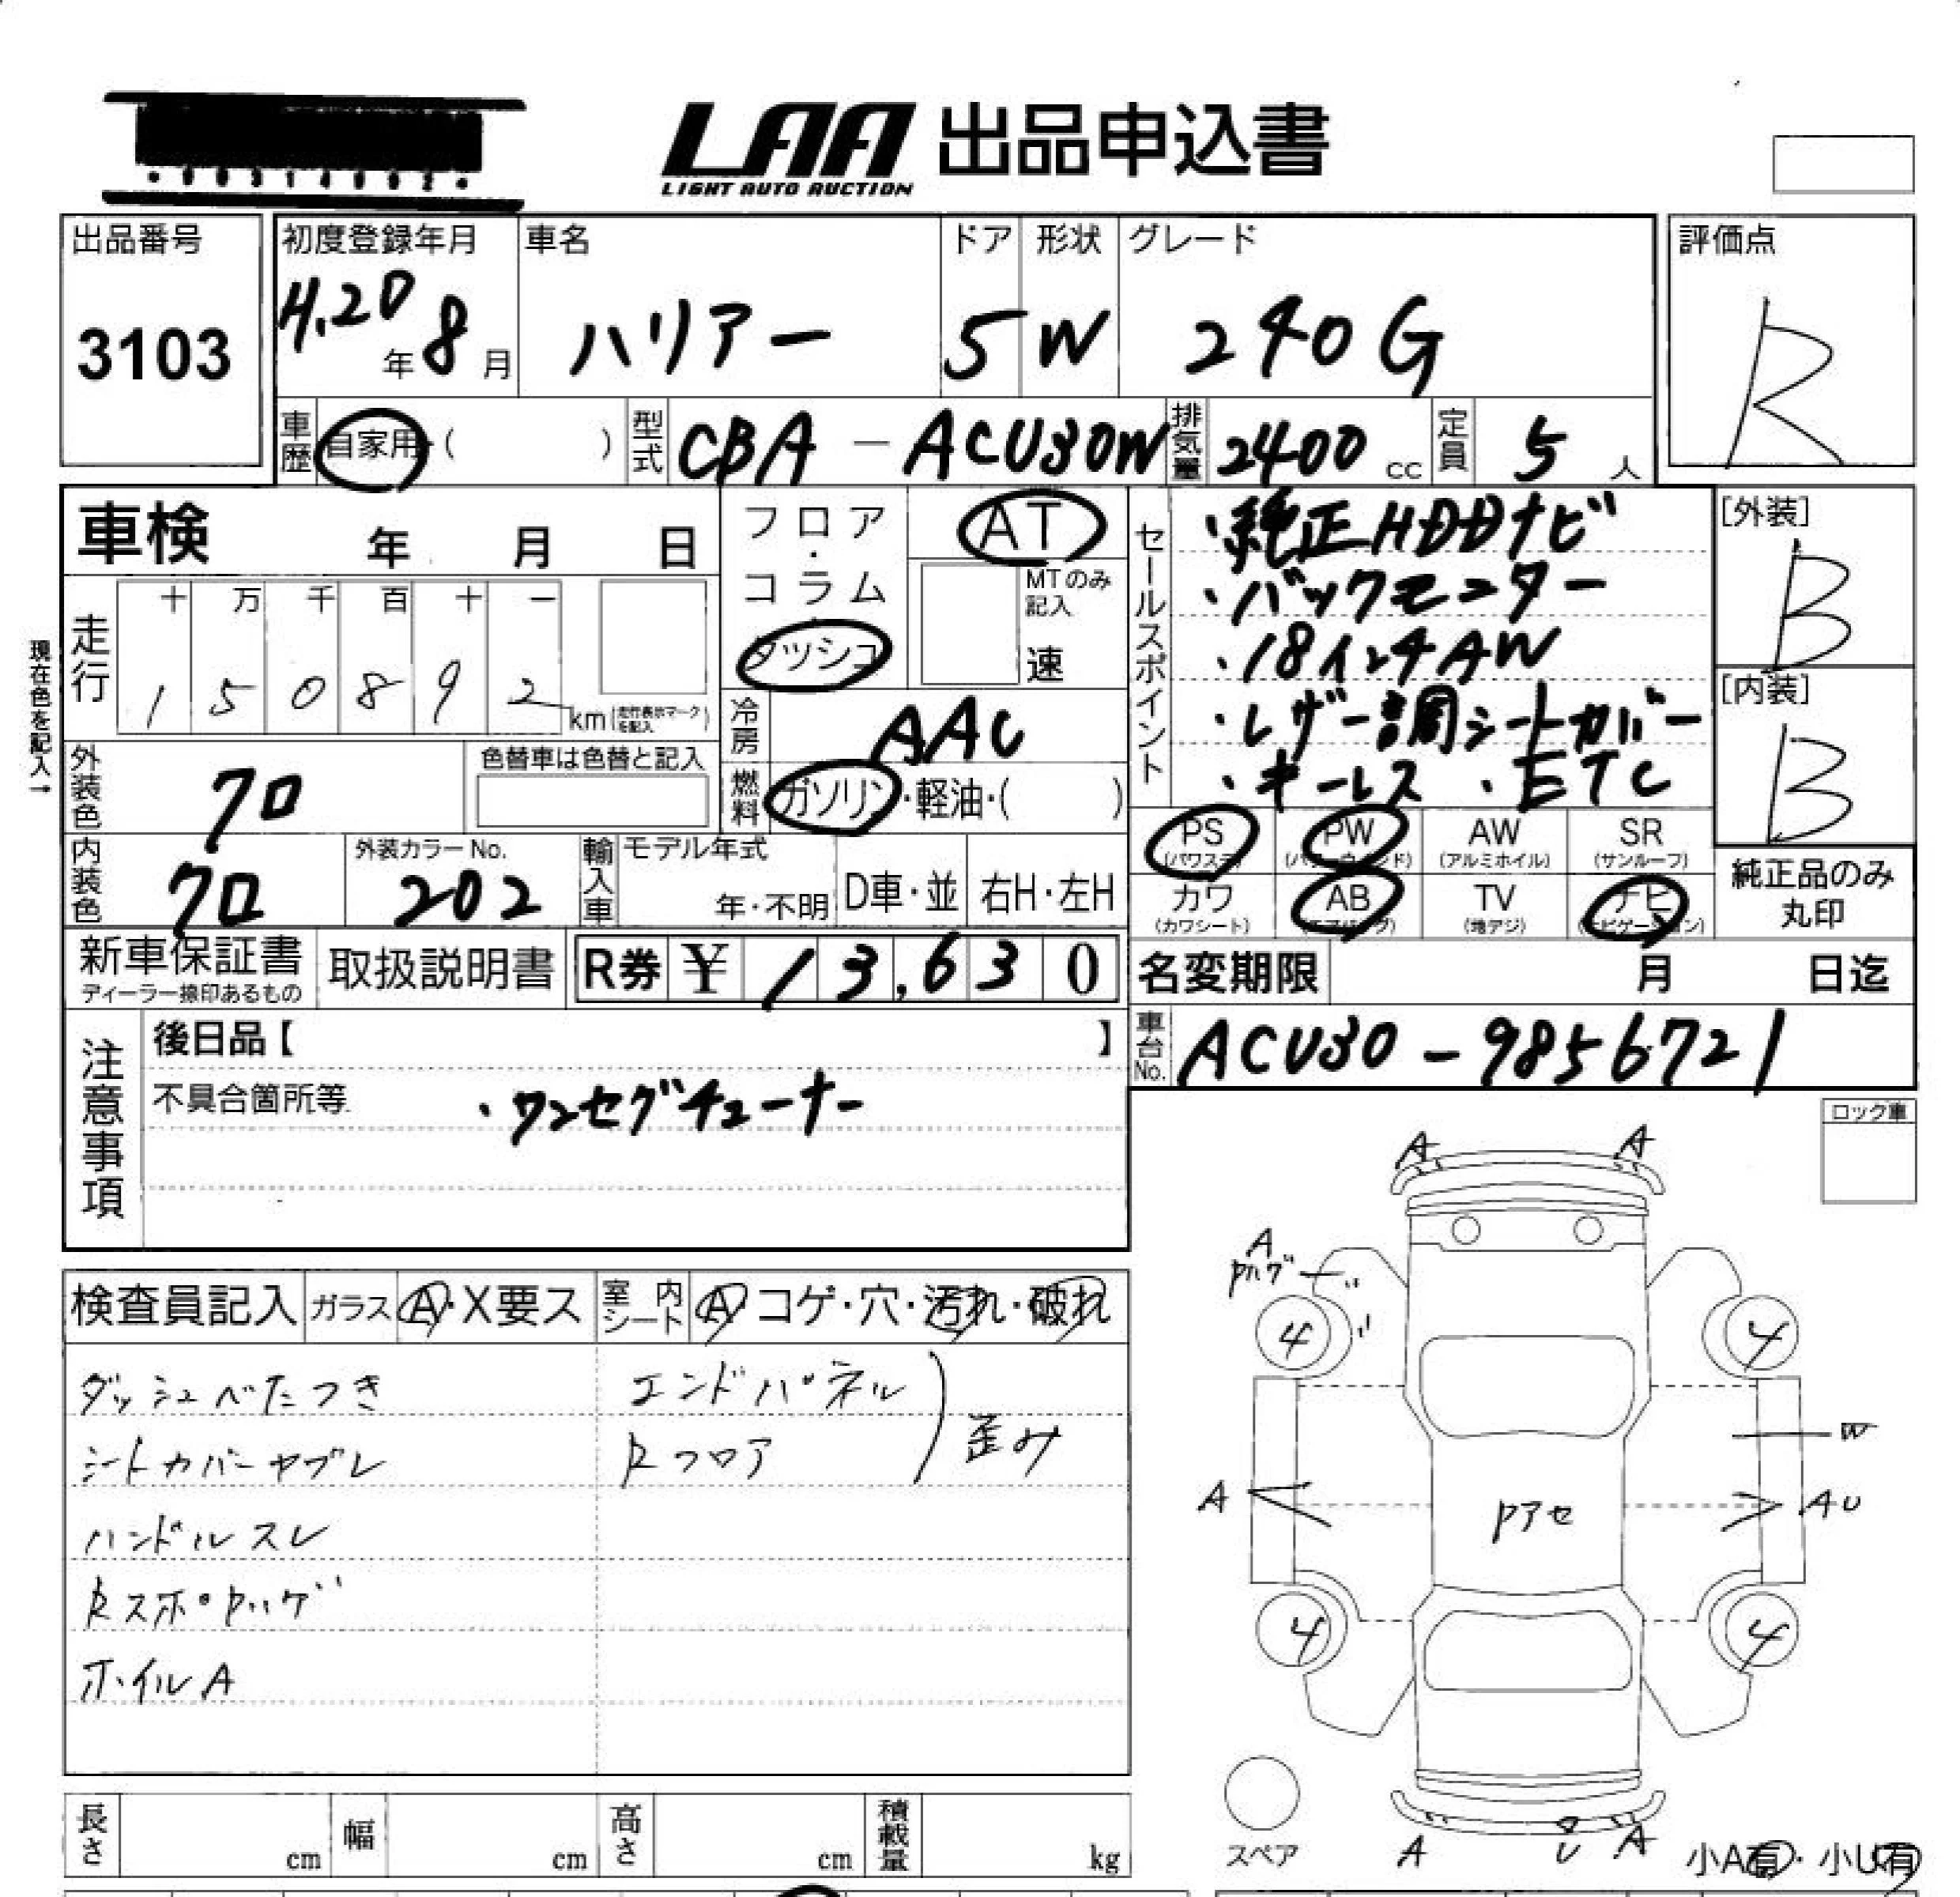 LAA 出品申込書
LIGHT AUTO AUCTION
出品番号
3103
初度登録年月
H.20年 8月
車名
ハリアー
ドア
5
形状
W
グレード
240G
評価点
R
車歴 自家用・( )
型式 CBA-ACU30W
排気量 2400 cc
定員 5人
車検 年 月 日
フロア・コラム・ダッシュ
AT
MTのみ記入
速
セールスポイント
・純正HDDナビ
・バックモニター
・18インチAW
・レザー調シートカバー
・キーレス ・ETC
[外装]
B
[内装]
B
現在色を記入→
走行
十 万 千 百 十 一
1 5 0 8 9 2 km (走行表示マークを記入)
冷房 AAC
外装色 クロ
色替車は色替と記入
燃料 ガソリン・軽油・( )
内装色 クロ
外装カラーNo. 202
輸入車
モデル年式
年・不明
D車・並
右H・左H
PS (パワステ)
PW (パワーウィンド)
AW (アルミホイル)
SR (サンルーフ)
カワ (カワシート)
AB (エアバッグ)
TV (地デジ)
ナビ (ナビゲーション)
純正品のみ
丸印
新車保証書
ディーラー捺印あるもの
取扱説明書
R券 ¥ 13,630
名変期限 月 日迄
注意事項
後日品【 】
不具合箇所等
・ワンセグチューナー
車台No. ACU30-9856721
ロック車
検査員記入
ガラス A・X要ス
室内シート A コゲ・穴・汚れ・破れ
ダッシュベたつき
シートカバーヤブレ
ハンドルスレ
RスポPハゲ
ホイルA
エンドパネル
Rフロア
歪み
A
A
A
Pハゲ
4
4
W
A
AU
Pアセ
4
4
スペア
A
U
A
小A有・小U有
長さ cm
幅 cm
高さ cm
積載量 kg